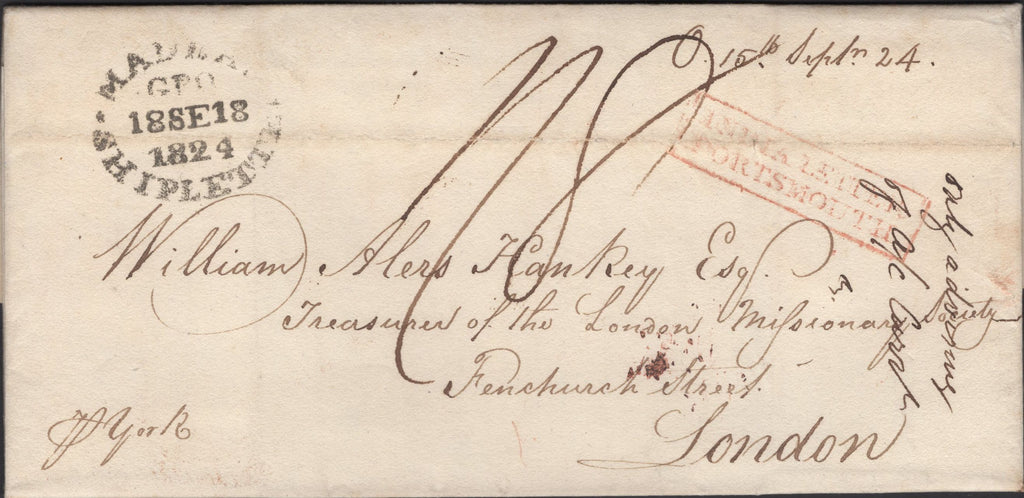 MADRAS
GPO
18SE18
1824
SHIPLETTER
O. 15th. Septr. 24.
INDIA LETTER
PORTSMOUTH
William Alers Hankey Esq.
Treasurer of the London Missionary Society
Fenchurch Street.
London
only advising
of
York